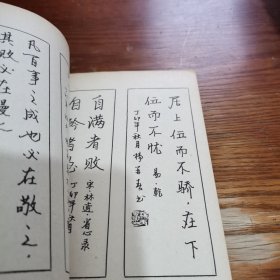 居上位而不骄.在下
位而不忧 易·乾
丁卯年秋月杨
自满者败 宋林逋·省心录
自矜者 丁卯年秋月
凡百事之成也必在敬之.
其败必在慢之